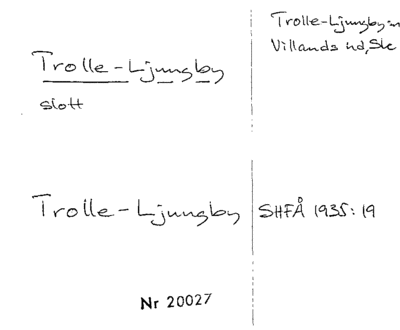 Trolle-Ljungby
slott
Trolle-Ljungby sn
Villands hd, Sk
Trolle-Ljungby
SHFÅ 1935:19
Nr 20027